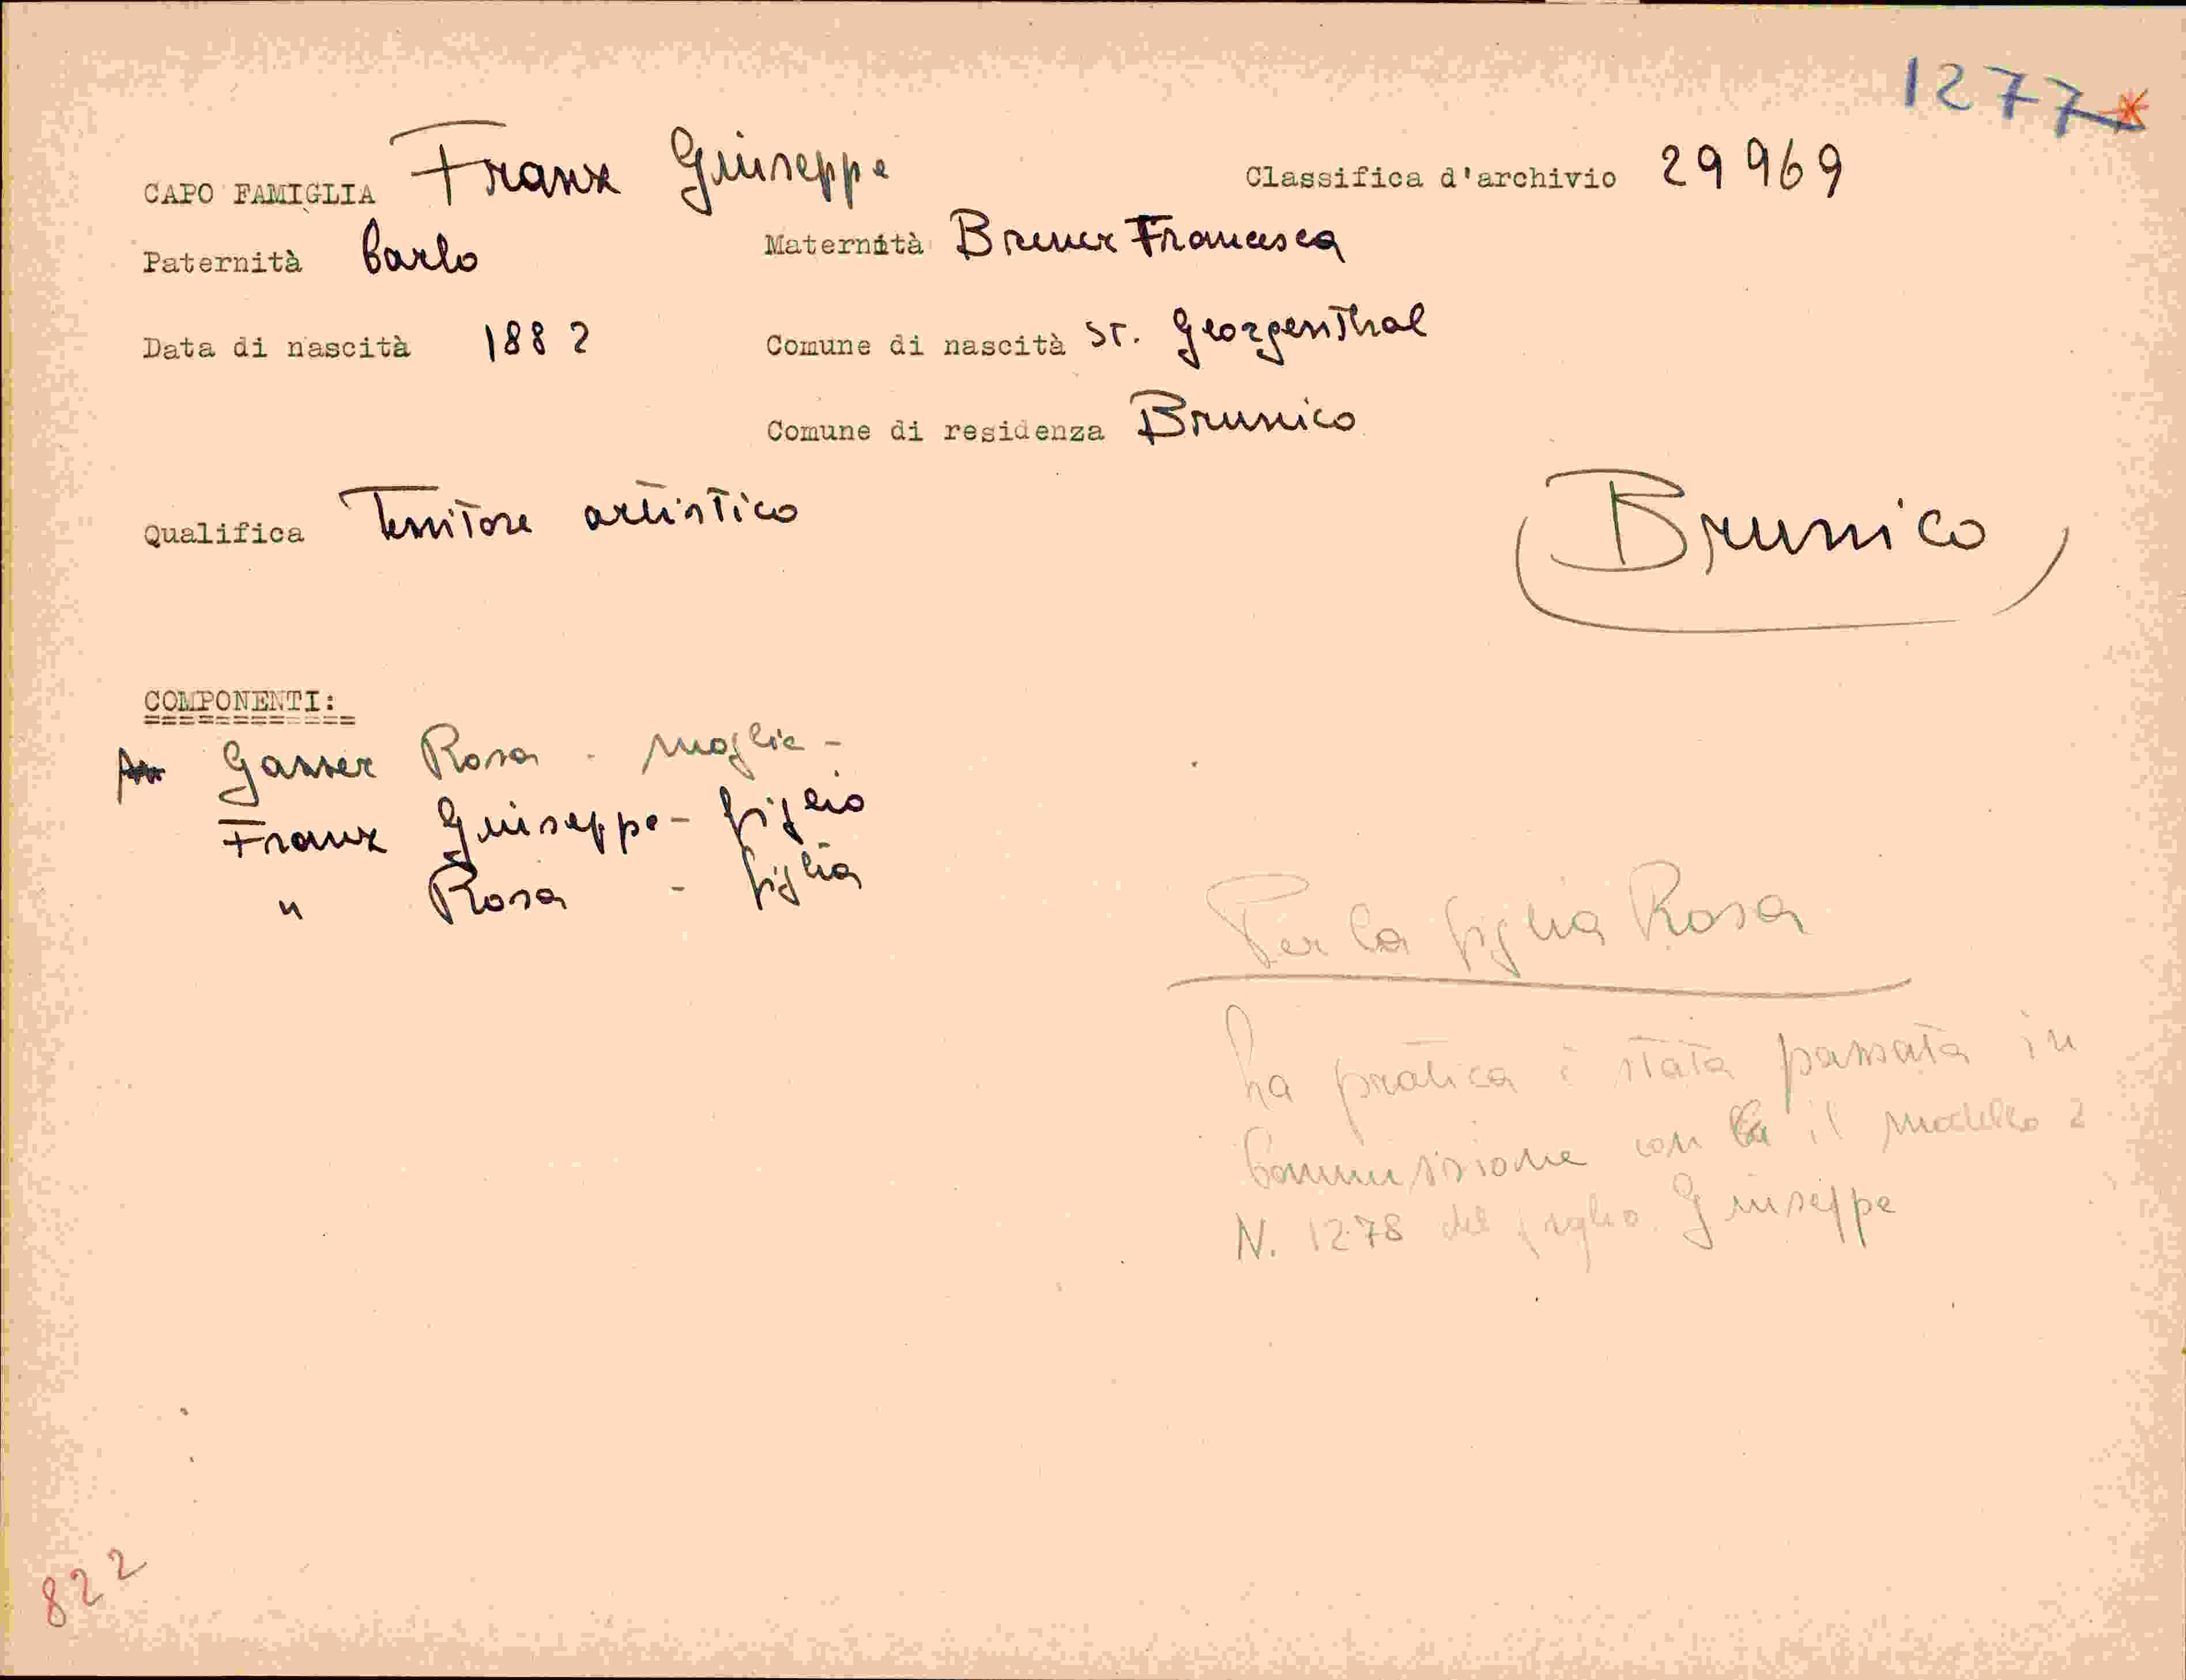 1277
CAPO FAMIGLIA Franz Giuseppe Classifica d'archivio 29969
Paternità Carlo Maternità Brener Francesca
Data di nascità 1882 Comune di nascità St. Georgenthal
Comune di residenza Brunico
Qualifica Tessitore artistico
Brunico
COMPONENTI:
Gasser Rosa - moglie -
Franz Giuseppe - figlio
" Rosa - figlia
Per la figlia Rosa
La pratica è stata passata in
Commissione con il modello 2
N. 1278 del figlio Giuseppe
822